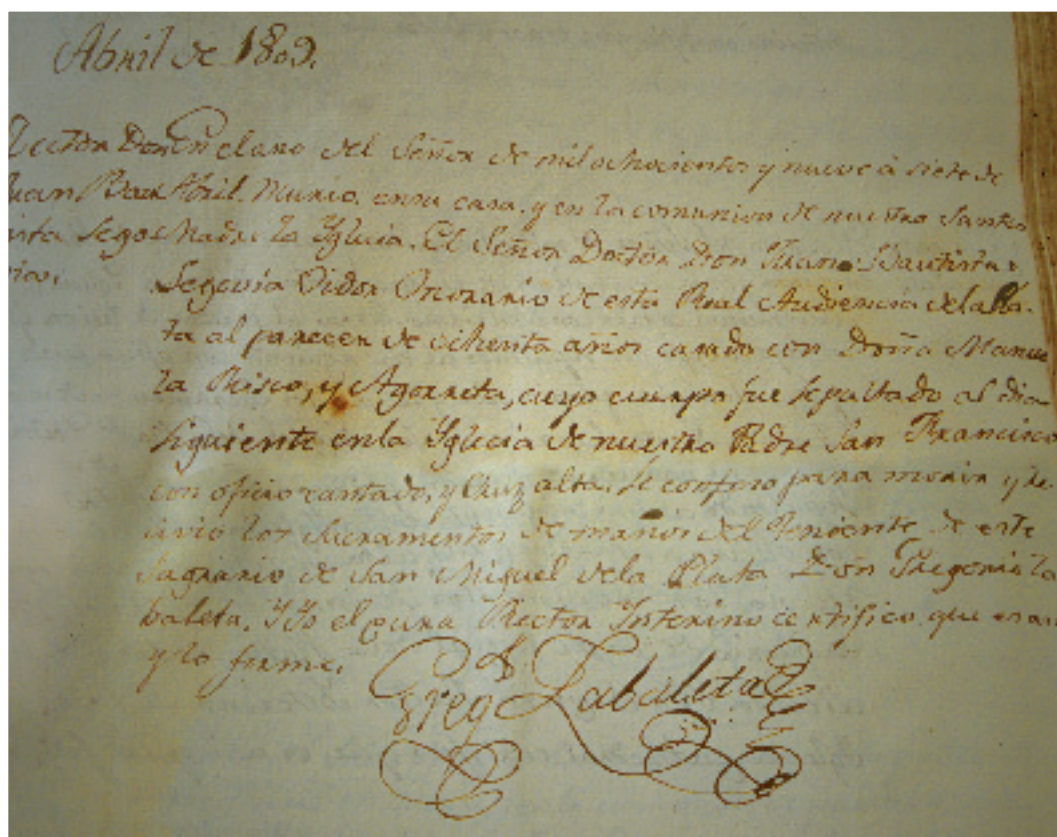 Abril de 1809.
Rector Don En el ano del Señor de mil ochocientos y nueve à siete de
Juan Bau Abril. Murio en su casa, y en la comunion de nuestra Santa
tista Sego Madre la Yglecia. El Señor Doctor Don Juan Bautista
via. Segovia Oidor Onorario de esta Real Audiencia de la Pla-
ta al parecer de ochenta anos casado con Doña Manue
la Risco, y Agorreta, cuyo cuerpo fue sepultado al dia
siguiente en la Yglecia de nuestro Padre San Francisco
con oficio cantado, y Cruz alta. Se confeso para morir y re
civio los Sacramentos de manos del Teniente de este
Sagrario de San Miguel de la Plata Don Gregorio Za
baleta. Y Yo el cura Rector Ynterino certifico que es asi
y lo firme.
Greg.o Zabaleta